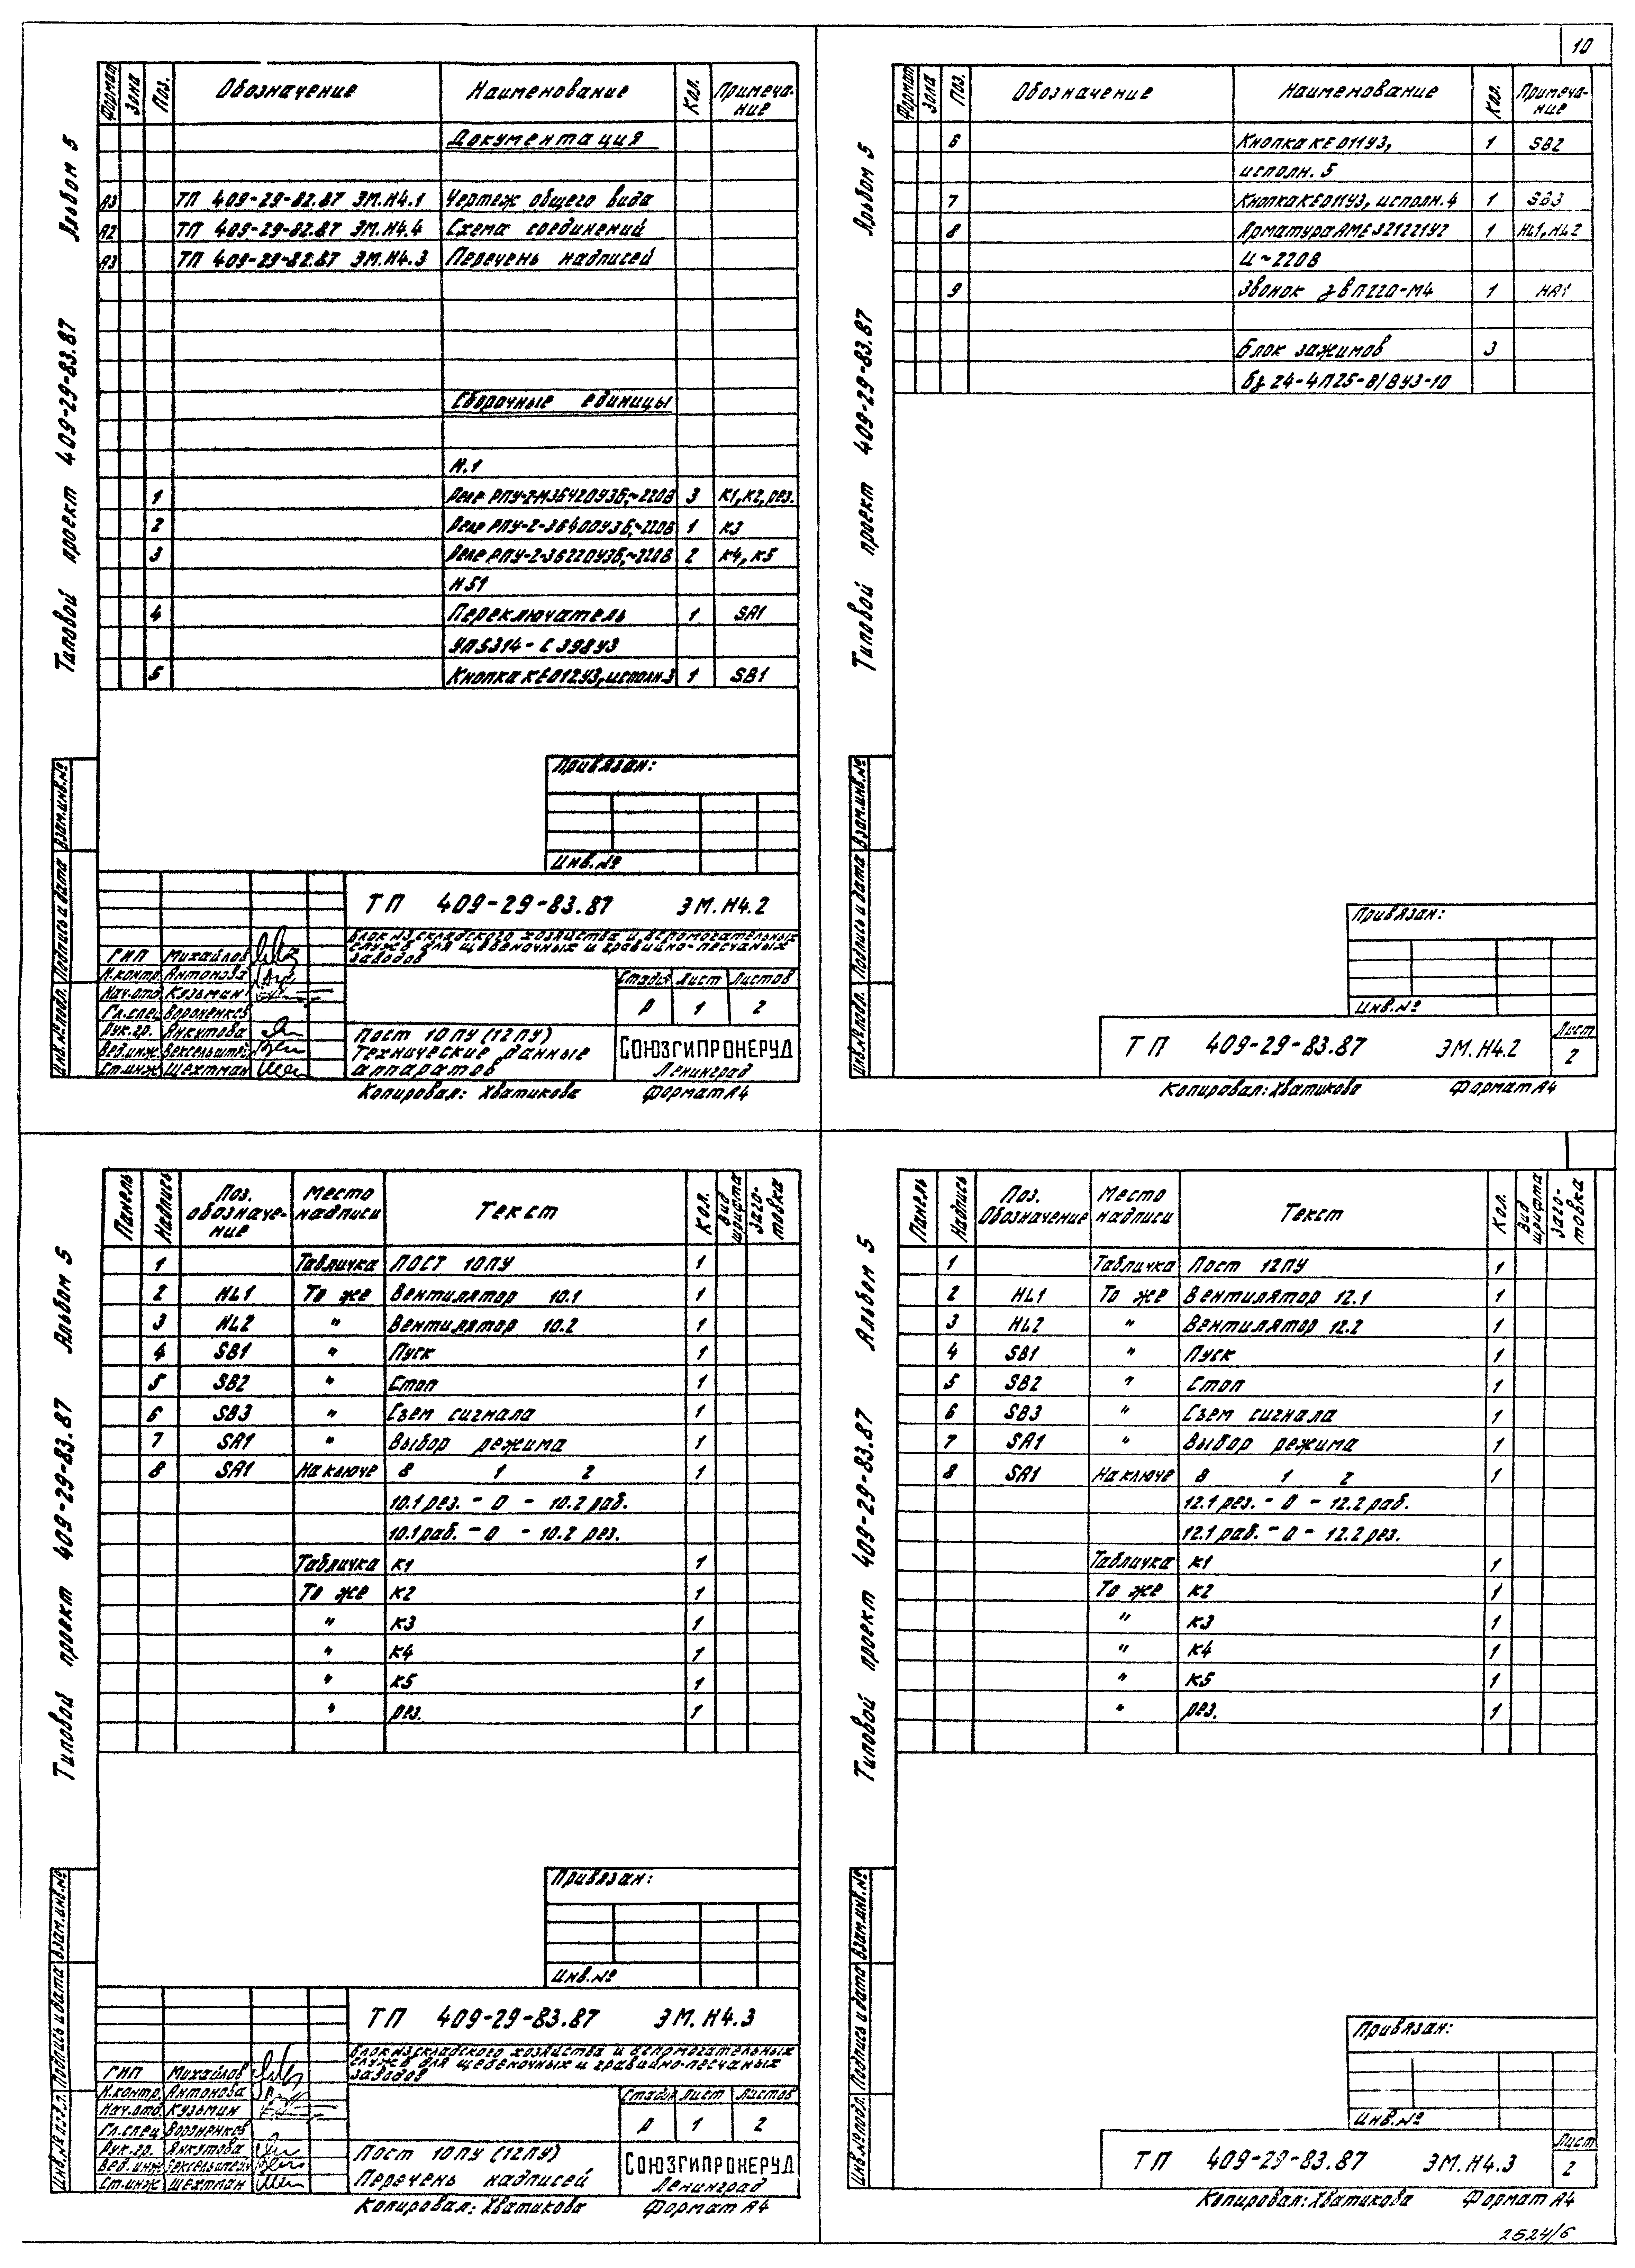 Альбом 5
Типовой проект 409-29-83.87
Формат Зона Поз. Обозначение Наименование Кол. Примеча-
ние
Документация
А3 ТП 409-29-82.87 ЭМ.Н4.1 Чертеж общего вида
А2 ТП 409-29-82.87 ЭМ.Н4.4 Схема соединений
А3 ТП 409-29-82.87 ЭМ.Н4.3 Перечень надписей
Сборочные единицы
Н.1
1 Реле РПУ-2-М36420У3Б,~220В 3 К1,К2,рез.
2 Реле РПУ-2-36400У3Б,~220В 1 К3
3 Реле РПУ-2-36220У3Б,~220В 2 К4, К5
НS1
4 Переключатель 1 SA1
УП5314-С398У3
5 Кнопка КЕ012У3, исполн.3 1 SB1
Привязан:
Инв.№
Взам.инв.№
Подпись и дата
Инв.№ подл.
ТП 409-29-83.87 ЭМ.Н4.2
Блок из складского хозяйства и вспомогательных
служб для щебеночных и гравийно-песчаных
заводов
ГИП Михайлов
Н.контр. Антонова
Нач.отд. Кузьмин
Гл.спец. Вороненков
Рук.гр. Янкутова
Вед.инж. Вексельштейн
Ст.инж. Шехтман
Стадия Лист Листов
Р 1 2
Пост 10ПУ (12ПУ)
Технические данные
аппаратов
СОЮЗГИПРОНЕРУД
Ленинград
Копировал: Хватикова Формат А4
10
Альбом 5
Типовой проект 409-29-83.87
Формат Зона Поз. Обозначение Наименование Кол. Примеча-
ние
6 Кнопка КЕ011У3, 1 SB2
исполн. 5
7 Кнопка КЕ011У3, исполн. 4 1 SB3
8 Арматура АМЕ32122У2 1 HL1, HL2
U~220В
9 Звонок ЗВП220-М4 1 НА1
Блок зажимов 3
БЗ 24-4П25-В/ВУ3-10
Привязан:
Инв.№
Взам.инв.№
Подпись и дата
Инв.№ подл.
ТП 409-29-83.87 ЭМ.Н4.2 Лист
2
Копировал: Хватикова Формат А4
Альбом 5
Типовой проект 409-29-83.87
Панель Надпись Поз.
обозначе-
ние Место
надписи Текст Кол. Вид
шрифта Заго-
товка
1 Табличка ПОСТ 10ПУ 1
2 HL1 То же Вентилятор 10.1 1
3 HL2 " Вентилятор 10.2 1
4 SB1 " Пуск 1
5 SB2 " Стоп 1
6 SB3 " Съем сигнала 1
7 SA1 " Выбор режима 1
8 SA1 На ключе В 1 2 1
10.1 рез. - 0 - 10.2 раб.
10.1 раб. - 0 - 10.2 рез.
Табличка К1 1
То же К2 1
" К3 1
" К4 1
" К5 1
" рез. 1
Привязан:
Инв.№
Взам.инв.№
Подпись и дата
Инв.№ подл.
ТП 409-29-83.87 ЭМ.Н4.3
Блок из складского хозяйства и вспомогательных
служб для щебеночных и гравийно-песчаных
заводов
ГИП Михайлов
Н.контр. Антонова
Нач.отд. Кузьмин
Гл.спец. Вороненков
Рук.гр. Янкутова
Вед.инж. Вексельштейн
Ст.инж. Шехтман
Стадия Лист Листов
Р 1 2
Пост 10ПУ (12ПУ)
Перечень надписей
СОЮЗГИПРОНЕРУД
Ленинград
Копировал: Хватикова Формат А4
Альбом 5
Типовой проект 409-29-83.87
Панель Надпись Поз.
Обозначение Место
надписи Текст Кол. Вид
шрифта Заго-
товка
1 Табличка Пост 12ПУ 1
2 HL1 То же Вентилятор 12.1 1
3 HL2 " Вентилятор 12.2 1
4 SB1 " Пуск 1
5 SB2 " Стоп 1
6 SB3 " Съем сигнала 1
7 SA1 " Выбор режима 1
8 SA1 На ключе В 1 2 1
12.1 рез. - 0 - 12.2 раб.
12.1 раб. - 0 - 12.2 рез.
Табличка К1 1
То же К2 1
" К3 1
" К4 1
" К5 1
" рез. 1
Привязан:
Инв.№
Взам.инв.№
Подпись и дата
Инв.№ подл.
ТП 409-29-83.87 ЭМ.Н4.3 Лист
2
Копировал: Хватикова Формат А4
2524/6